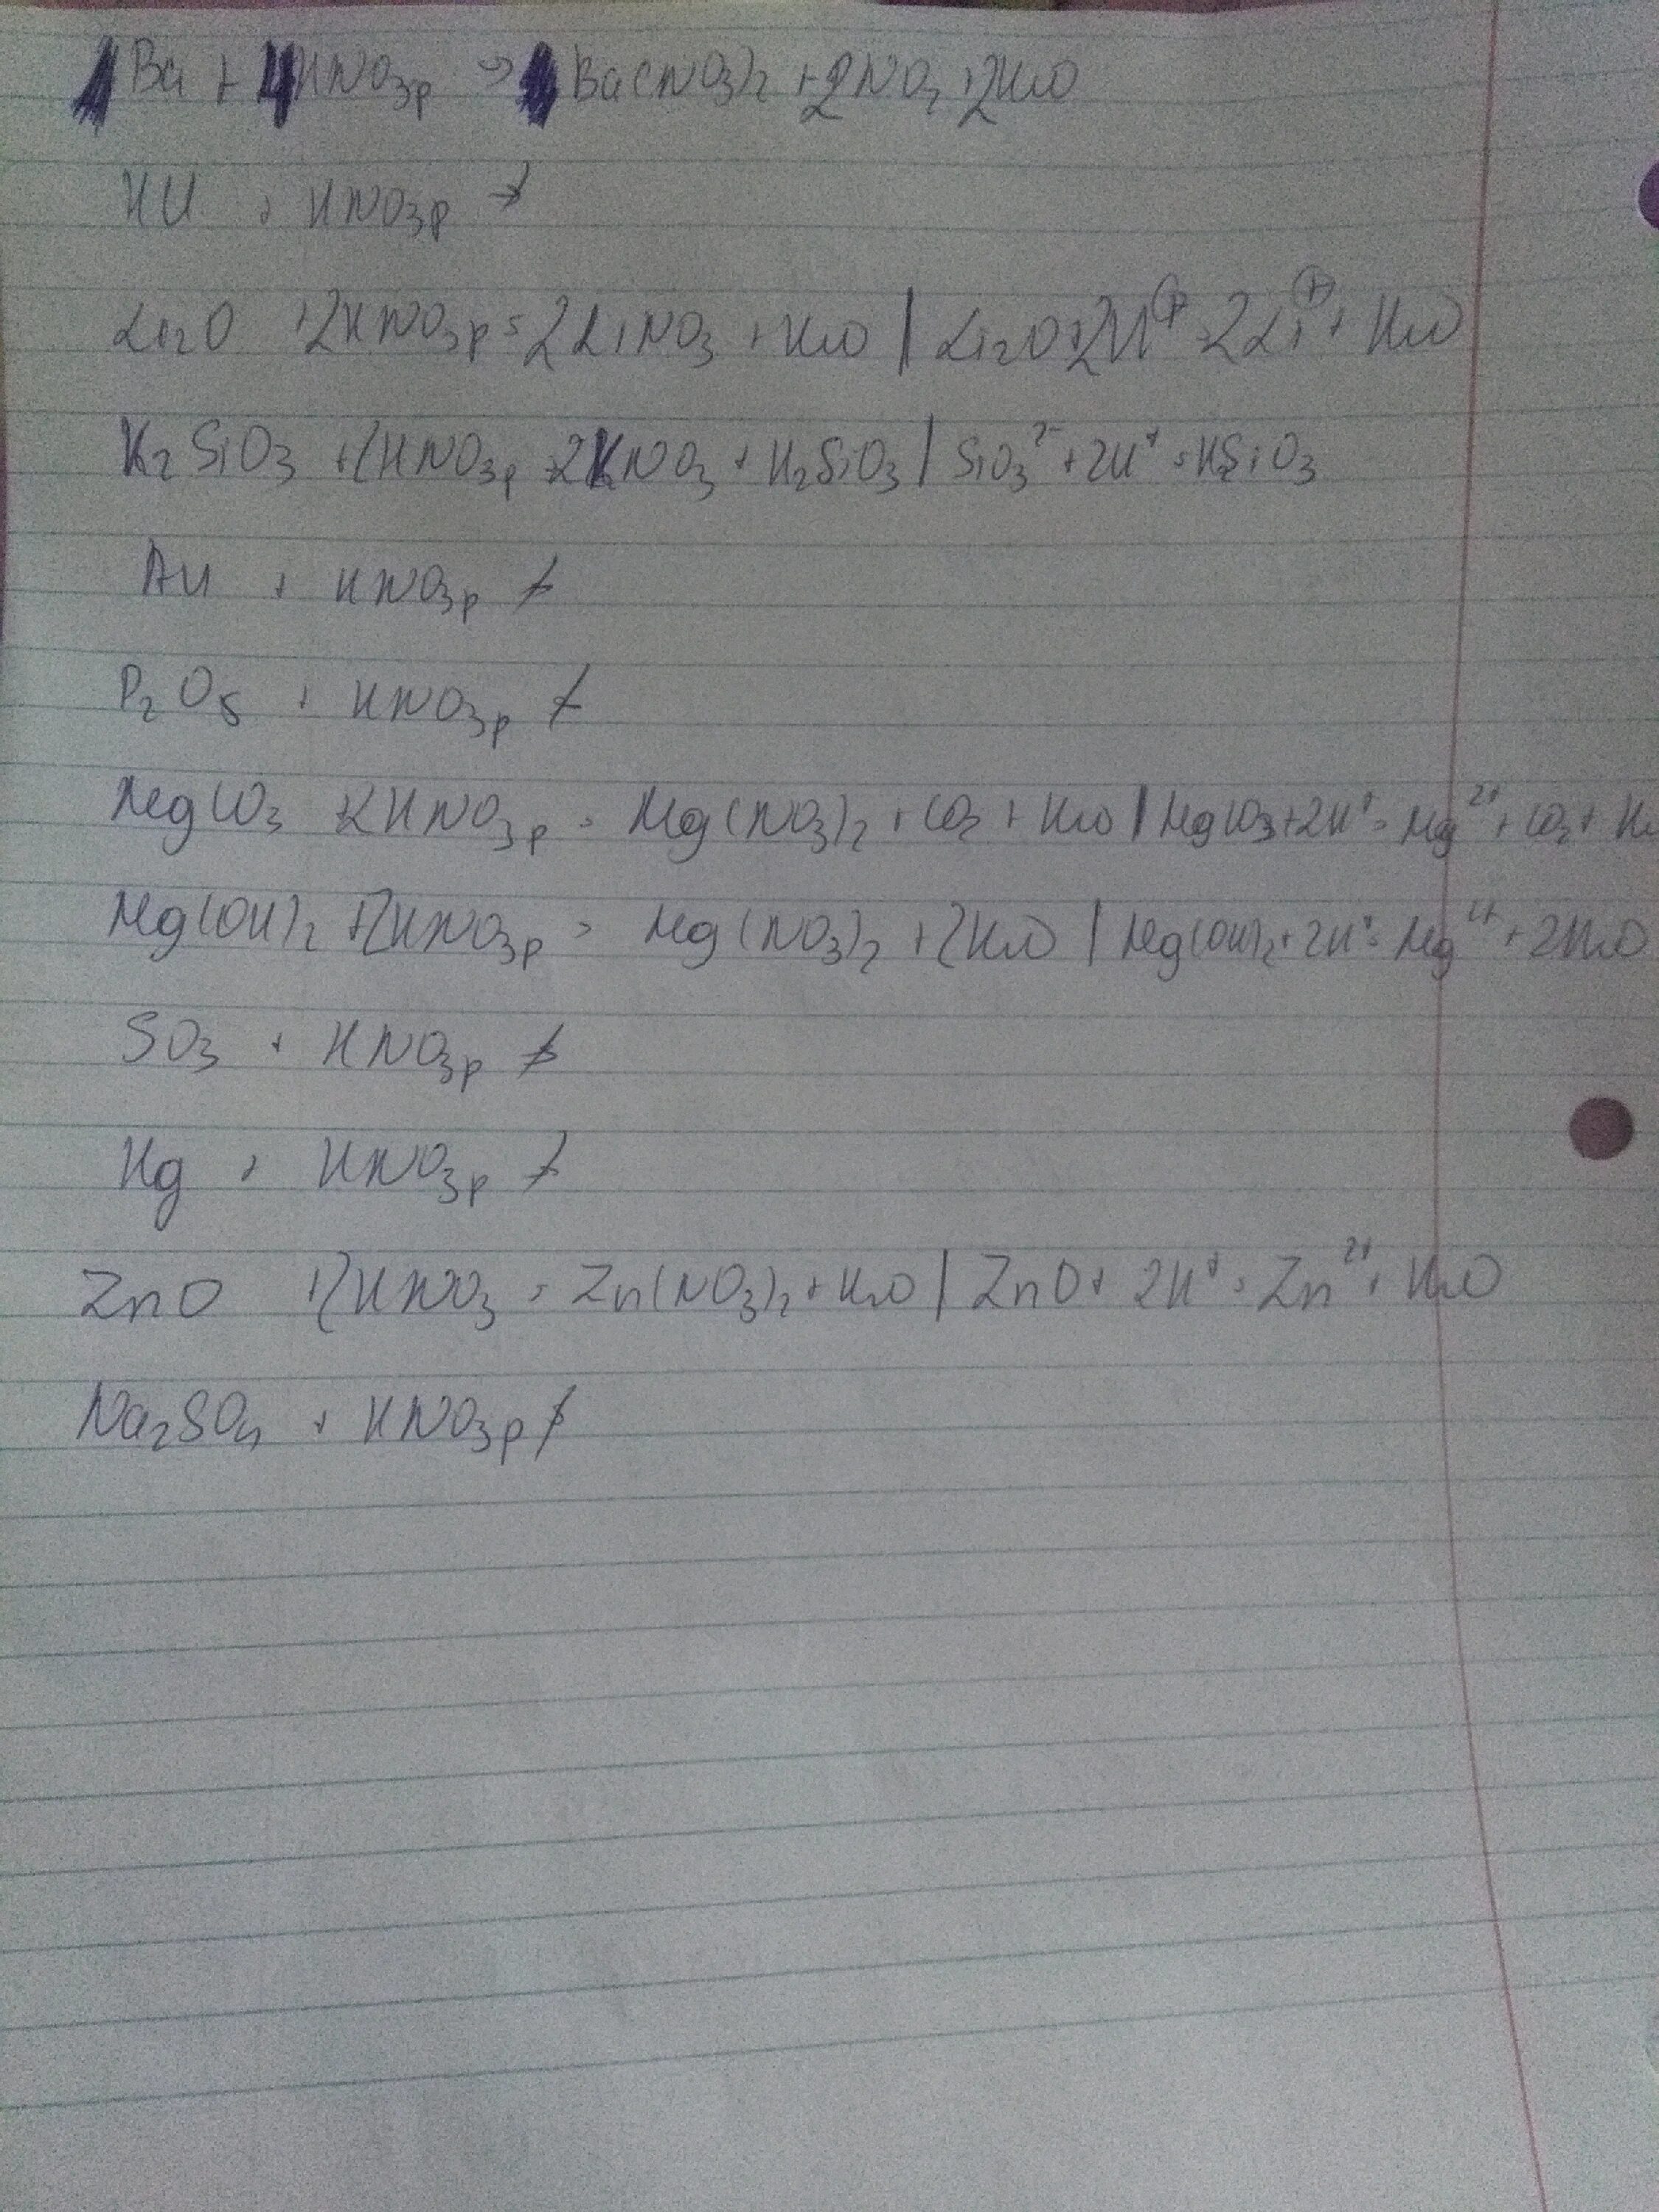 1Ba + 4HNO3р → Ba(NO3)2 + 2NO2 + 2H2O
HCl + HNO3р ↛
Li2O + 2HNO3р = 2LiNO3 + H2O | Li2O + 2H⁺ = 2Li⁺ + H2O
K2SiO3 + 2HNO3р = 2KNO3 + H2SiO3 | SiO3²⁻ + 2H⁺ = H2SiO3
Au + HNO3р ↛
P2O5 + HNO3р ↛
MgCO3 + 2HNO3р = Mg(NO3)2 + CO2 + H2O | MgCO3 + 2H⁺ = Mg²⁺ + CO2 + H2
Mg(OH)2 + 2HNO3р = Mg(NO3)2 + 2H2O | Mg(OH)2 + 2H⁺ = Mg²⁺ + 2H2O
SO3 + HNO3р ↛
Hg + HNO3р ↛
ZnO + 2HNO3 = Zn(NO3)2 + H2O | ZnO + 2H⁺ = Zn²⁺ + H2O
Na2SO4 + HNO3р ↛